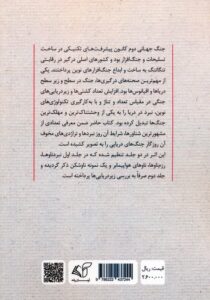 جنگ جهانی دوم کانون پیشرفت‌های تکنیکی در ساخت
تسلیحات و جنگ‌افزار بود و کشورهای اصلی درگیر در رقابتی
تنگاتنگ به ساخت و ابداع جنگ‌افزارهای نوین پرداختند. یکی
از مهم‌ترین صحنه‌های درگیری‌ها، جنگ در سطح و زیر سطح
دریاها و اقیانوس‌ها بود. افزایش تعداد کشتی‌ها و زیردریایی‌های
جنگی در مقیاس تعداد و تناژ و با به‌کارگیری تکنولوژی‌های
نوین، نبرد در دریا را به یکی از وحشتناک‌ترین و مهلک‌ترین
جنگ‌ها تبدیل کرده بود. کتاب حاضر ضمن معرفی تعدادی از
مشهورترین شناورها، شرایط آن روز نبردها و تراژدی‌های مخوف
آن روزگار جنگ‌های دریایی را به تصویر کشیده است.
این اثر در دو جلد تنظیم شده که در جلد اول نبردناوها،
رزم‌ناوها، ناوهای هواپیمابر و یک نمونه ناوشکن ذکر گردیده و
جلد دوم صرفاً به بررسی زیردریایی‌ها پرداخته است.
قیمت: ریال